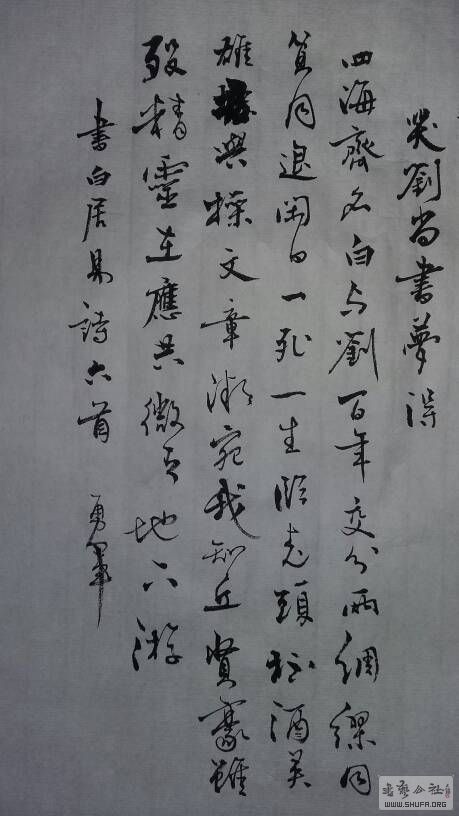 哭劉尚書夢得
四海齊名白与劉百年交分兩綢繆同
貧同退閑日一死一生臨老頭杯酒英
雄與操文章微宛我知丘賢豪雖
歿精靈在應共微之地下游
書白居易詩六首 勇軍
書藝公社
WWW.SHUFA.ORG